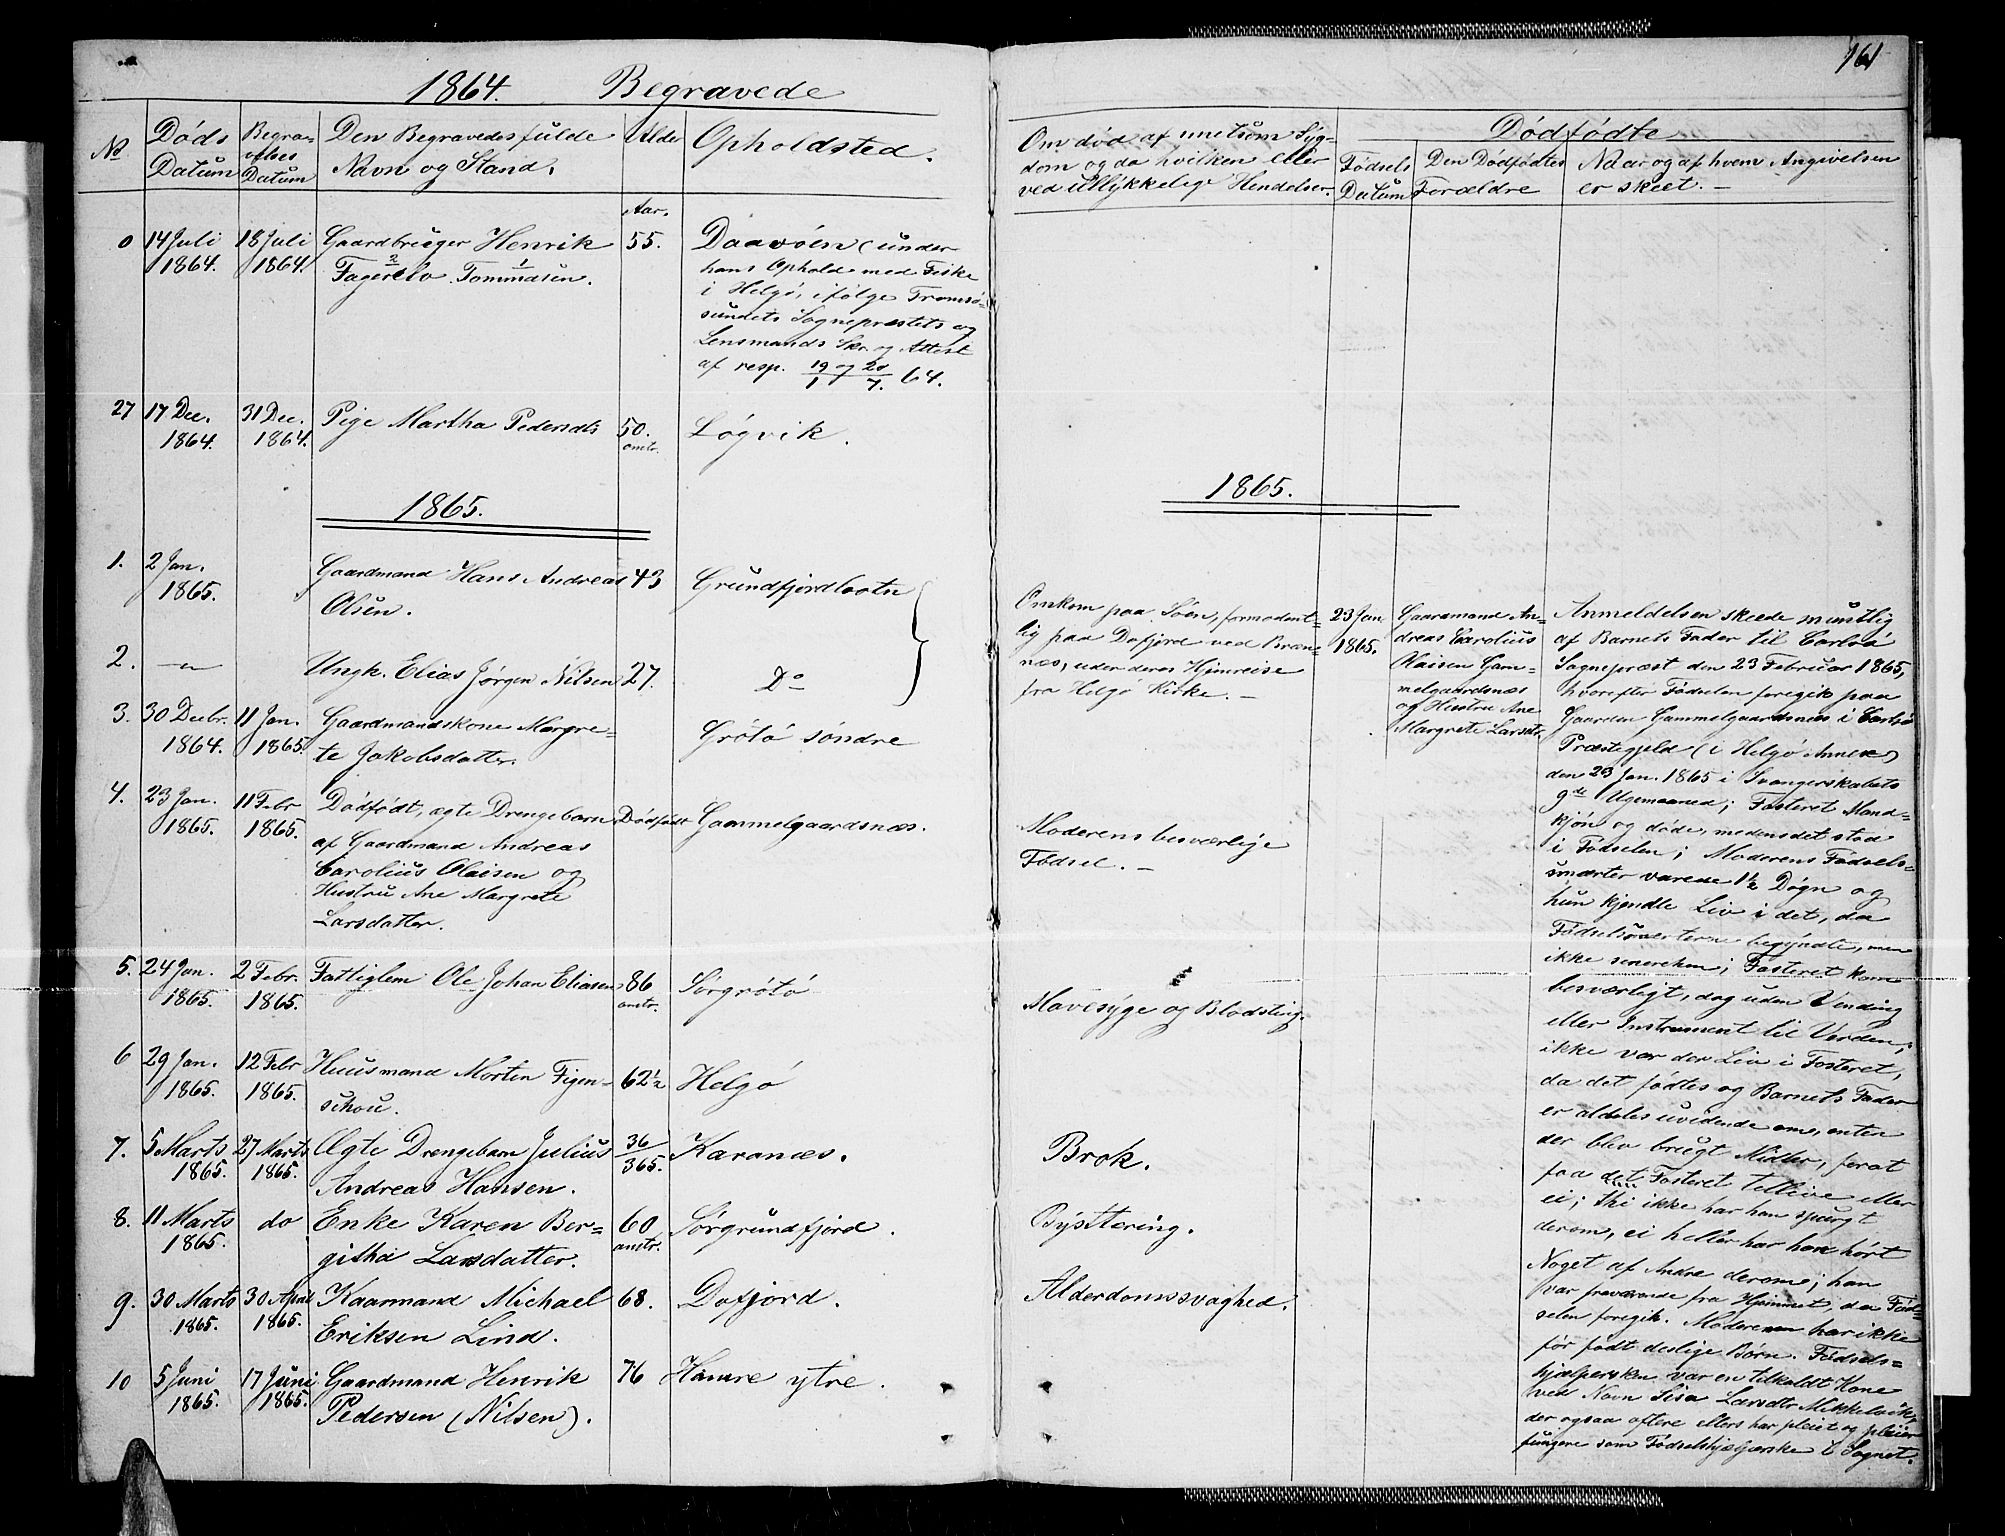 1864. Begravede
No
Døds
Datum
Begra-
velses
Datum
Den Begravedes fulde
Navn og Stand.
Alder
Opholdsted.
0
14 Juli
1864.
18 Juli
1864.
Gaardbruger Henrik
2 1
Fagerelv Tommasen.
Aar.
55.
Daavøen (under
hans Ophold med Fiske
i Helgø, ifølge Tromsø-
sundets Sognepræstets og
Lensmands Skr. og Attest
af resp. 19/1 og 20/7. 64.
27
17 Dec.
1864.
31 Dec.
1864.
Pige Martha Pedersdtr
50.
omtr.
Løgvik.
1865.
1.
2 Jan.
1865.
Gaardmand Hans Andreas
Olsen.
43
Grundfjordbotn
2.
—"—
Ungk. Elias Jørgen Nilsen
27.
Do
3.
30 Decbr.
1864.
11 Jan.
1865.
Gaardmandskone Margre-
te Jakobsdatter.
Grøtø søndre
4.
23 Jan.
1865.
11 Febr
1865.
Dødfødt, ægte Drengebarn
af Gaardmand Andreas
Carolius Olaisen og
Hustru Ane Margrete
Larsdatter.
Dødfødt
Gammelgaardsnæs.
5.
24 Jan.
1865.
2 Febr.
1865.
Fattiglem Ole Johan Eliasen
86
omtr.
Sørgrøtø
6
29 Jan.
1865.
12 Febr
1865.
Huusmand Morten Figen-
schou.
62 1/2
Helgø
7.
5 Marts
1865.
27 Marts
1865.
Ægte Drengebarn Julius
Andreas Hansen.
36/365.
Karanæs.
8.
11 Marts
1865.
do
Enke Karen Ber-
githa Larsdatter.
60
omtr.
Sørgrundfjord.
9.
30 Marts
1865.
30 April
1865.
Kaarmand Michael
Eriksen Lind.
68.
Dofjord.
10
5 Juni
1865.
17 Juni
1865.
Gaardmand Henrik
Pedersen (Nilsen).
76
Hamre ytre.
161
Om død af smetsom Syg-
dom og da hvilken eller
ved ullykkelige Hendelser.
Dødfødte
Fødsels
Datum
Den Dødfødtes
Forældre
Naar og af hvem Angivelsen
er skeet. —
1865.
Omkom paa Søen, formodent-
lig paa Dofjord ved Bræn-
næs, under deres Hjemreise
fra Helgø Kirke. —
Moderens besværlige
Fødsel. —
Mavesyge og Blodsting.
Brok.
Bysttæring.
Alderdomssvaghed.
23 Jan
1865.
Gaardmand An-
dreas Carolius
Olaisen Gam-
melgaardsnæs
og Hustru Ane
Margrete Larsdtr.
Anmeldelsen skeede mundtlig
af Barnets Fader til Carlsø
Sognepræst den 23 Februar 1865,
hvorefter Fødselen foregik paa
Gaarden Gammelgaardsnæs i Carlsø
Præstegjeld (i Helgø Annex)
den 23 Jan. 1865 i Svangerskabets
9de Ugemaaned; Fosteret Mand-
kjøn og døde, medens det stod
i Fødselen; Moderens Fødsels-
smerter varede 1 1/2 Døgn og
hun kjendte Liv i det, da
Fødselsmerterne begyndte, men
ikke senere hen; Fosteret kom
besværligt, dog uden Vending
eller Instrument til Verden;
ikke var der Liv i Fosteret,
da det fødtes og Barnets Fader
er aldeles uvidende om, enten
der blev brugt Midler, forat
faa det Fosteret tillive eller
ei; thi ikke har han spurgt
derom, ei heller har han hørt
Noget af Andre derom; han
var fraværende fra Hjemmet, da Fød-
selen foregik. Moderen har ikke
før født deslige Børn. Fødsels-
hjælpersken var en tilkaldt Kone
ved Navn Sisa Larsdtr Mikkelvik,
der ogsaa oftere ellers har pleiet og pleier
fungere som Fødselshjelperske i Sognet.